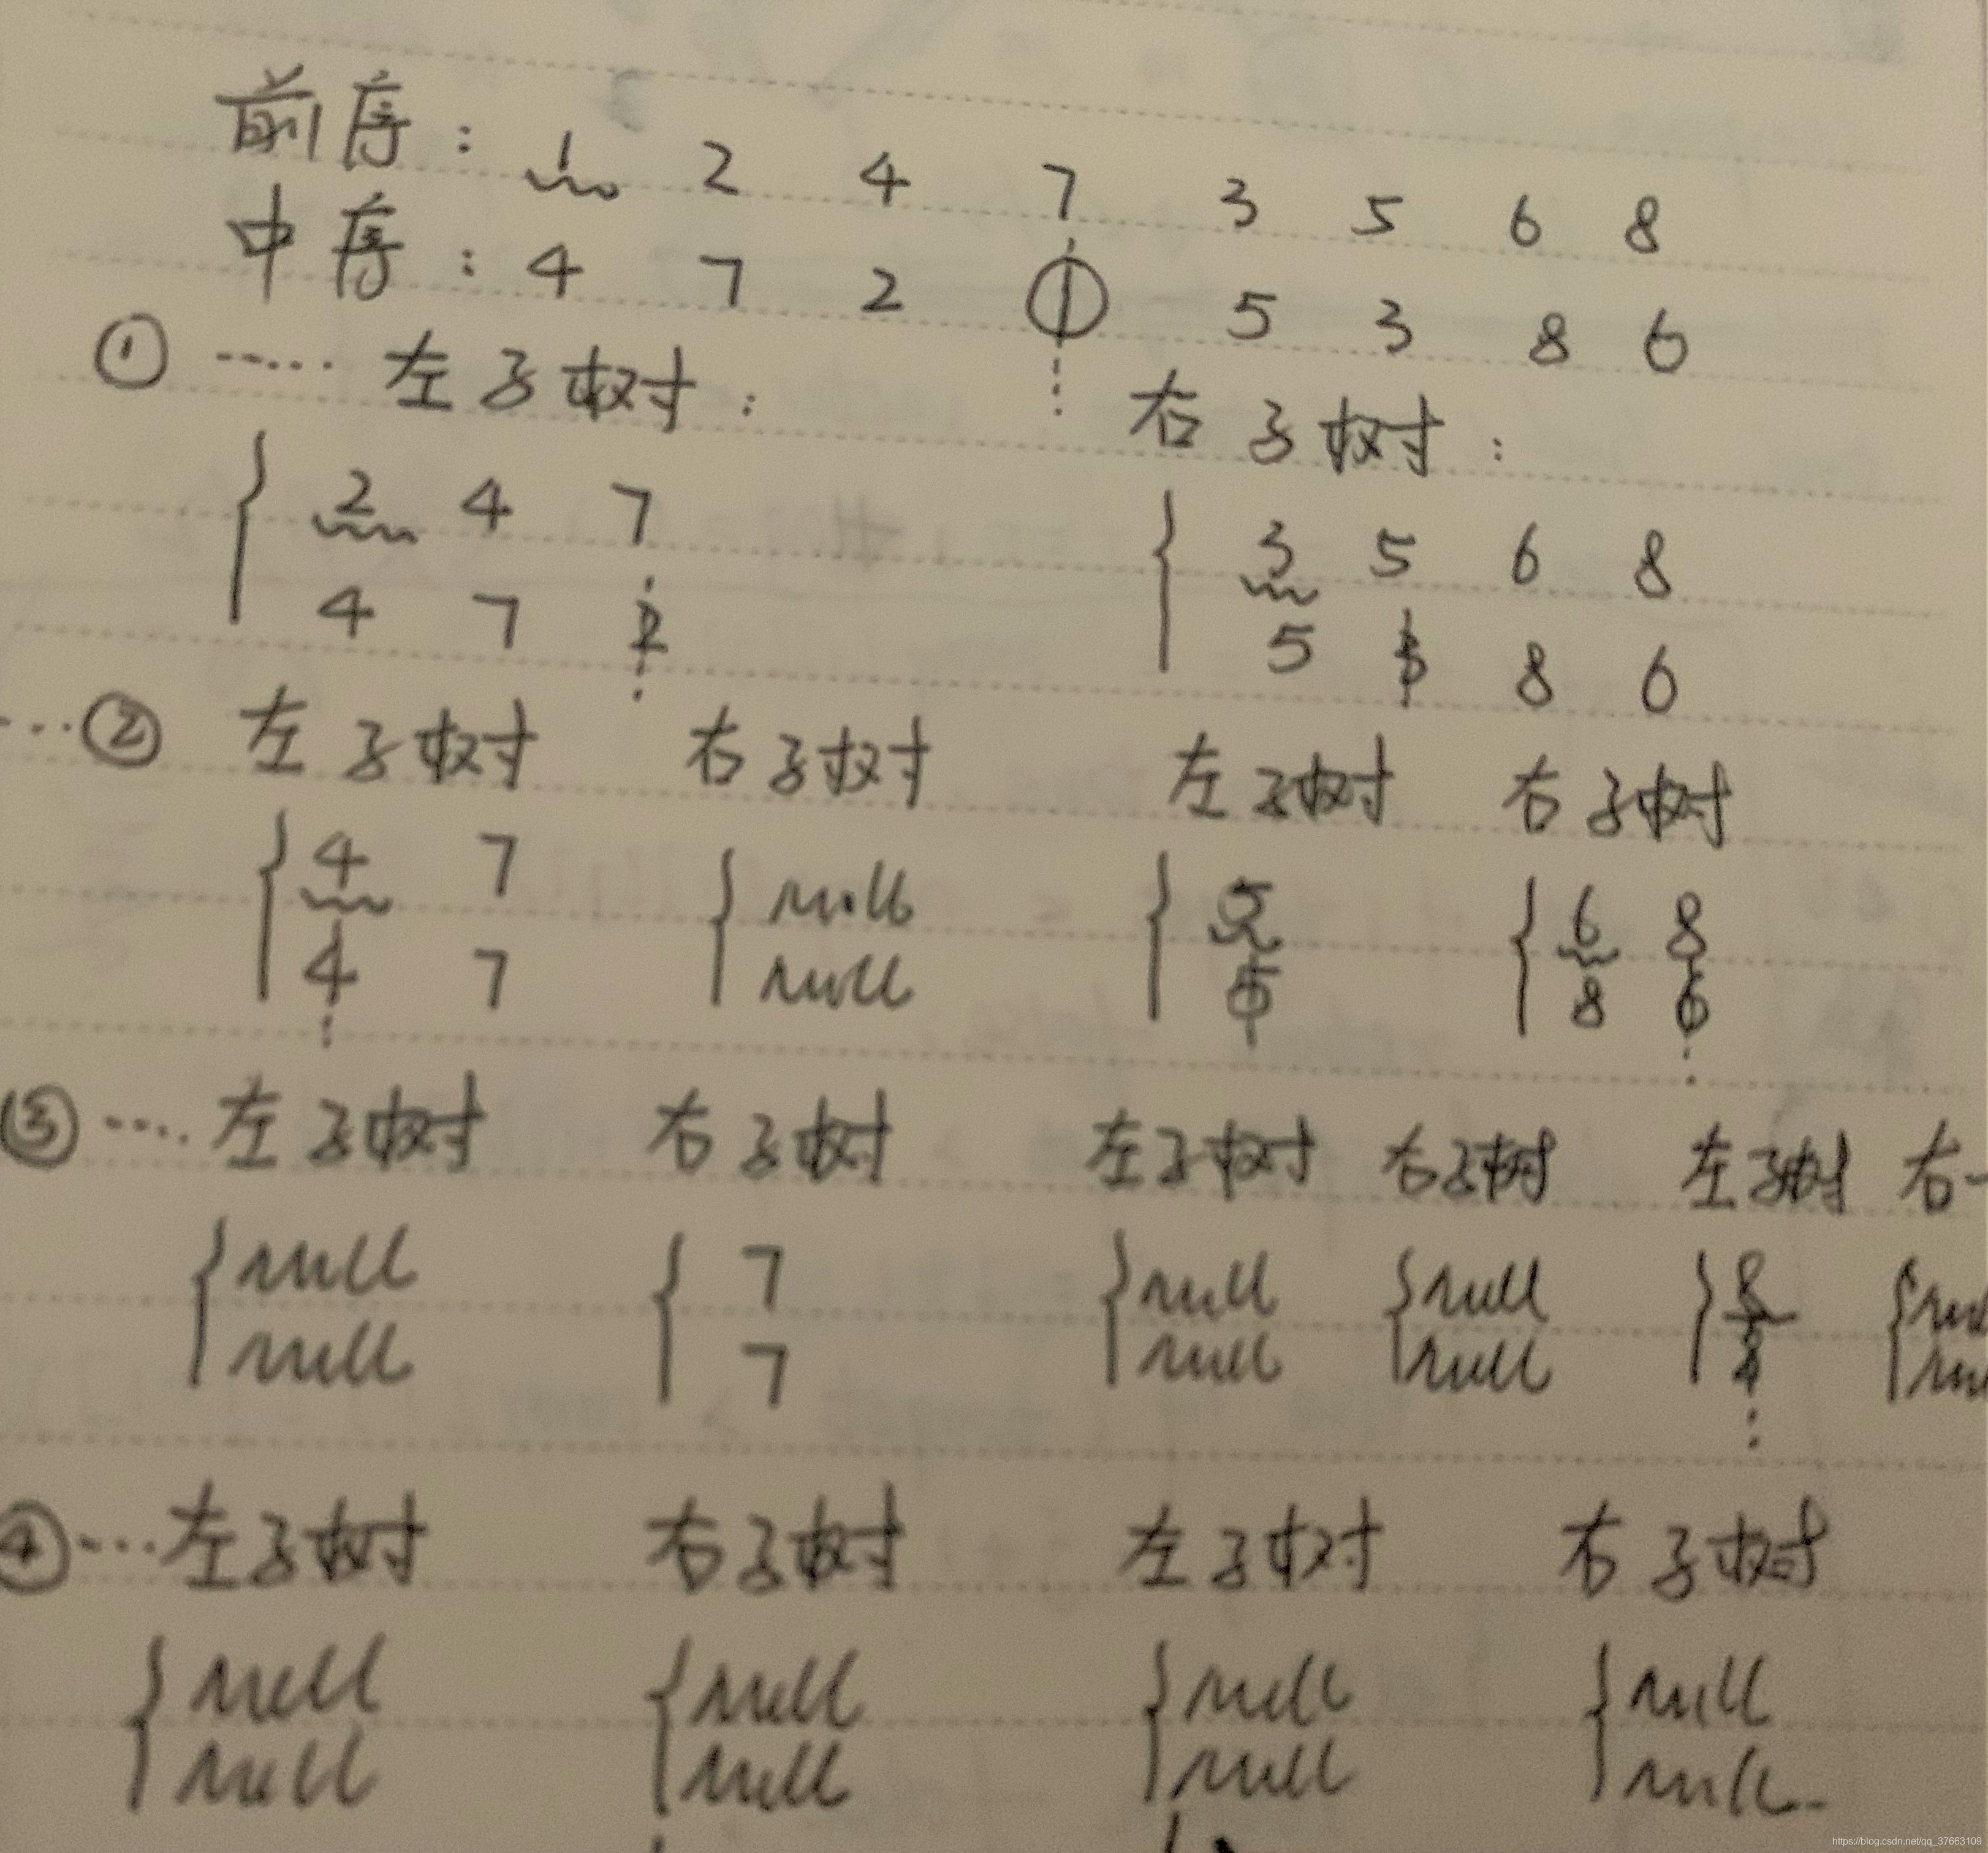 前序: 1 2 4 7 3 5 6 8
中序: 4 7 2 1 5 3 8 6
① ····· 左子树: 右子树:
2 4 7 3 5 6 8
4 7 2 5 3 8 6
···② 左子树 右子树 左子树 右子树
4 7 null 5 6 8
4 7 null 5 8 6
③ ···· 左子树 右子树 左子树 右子树 左子树 右
null 7 null null 8
null 7 null null 8
④ ··· 左子树 右子树 左子树 右子树
null null null null
null null null null
https://blog.csdn.net/qq_37663109